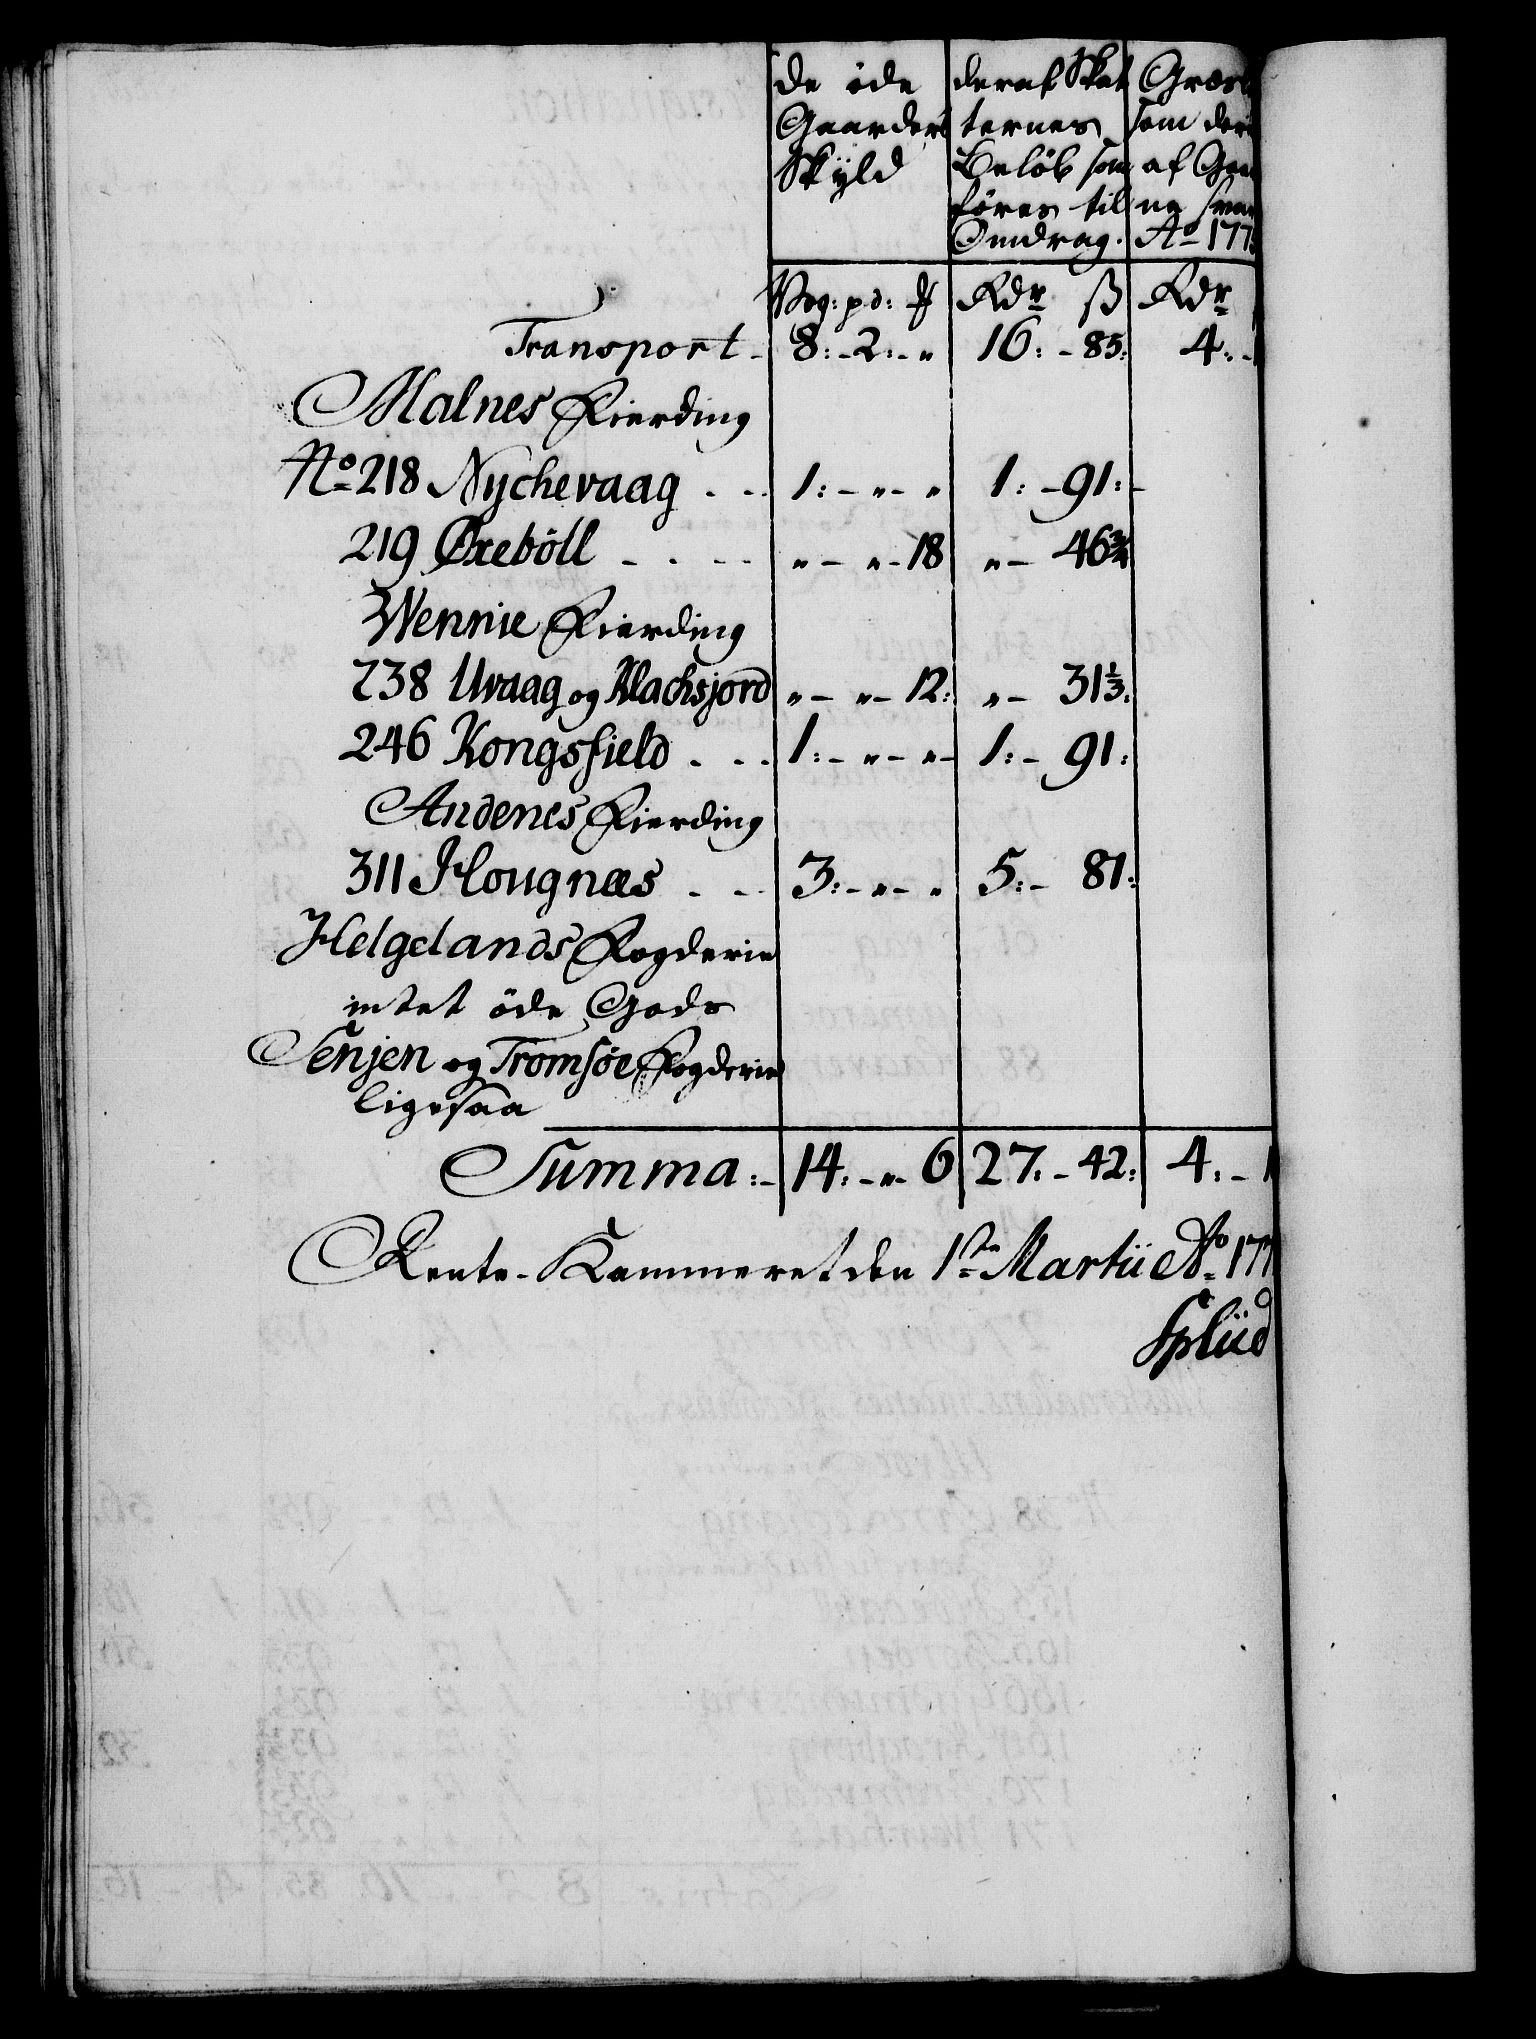 de öde deraf Skat Græs
Gaarders ternes som der
Skÿld Beløb som af
föres til
Omdrag. Ao 177
Vog: pd: Rdr ß Rdr
Transport - 8: - 2: - " 16: - 85: 4: -
Malnes Fierding
No 218 Nychevaag - - - 1: - " - " 1: - 91: -
219 Øxeböll - - - - " - " - 18 " - 46 3/4
Wennie Fierding
238 Uvaag og Klachsjord " - " - 12: " - 31 1/3:
246 Kongsfield - - - 1: - " - " - 1: - 91:
Andenes Fierding
311 Hougnæs - - - 3: - " - " 5: - 81:
Helgelands Fogderie
intet öde Gods
Senjen og Tromsöe Fogderie
ligesaa
Summa: - 14: - " - 6 27: - 42: 4: - 1
Rente-Kammeret den 1ste Martii Ao 177